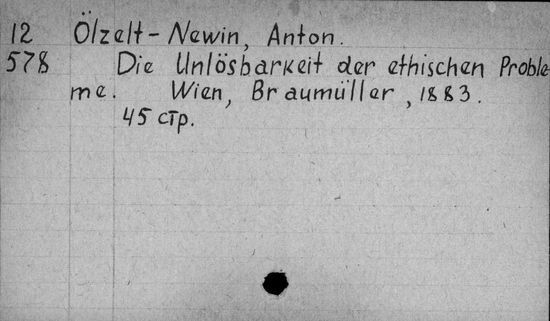 12 Ölzelt-Newin, Anton.
578 Die Unlösbarkeit der ethischen Proble-
me. Wien, Braumüller, 1883.
45 стр.